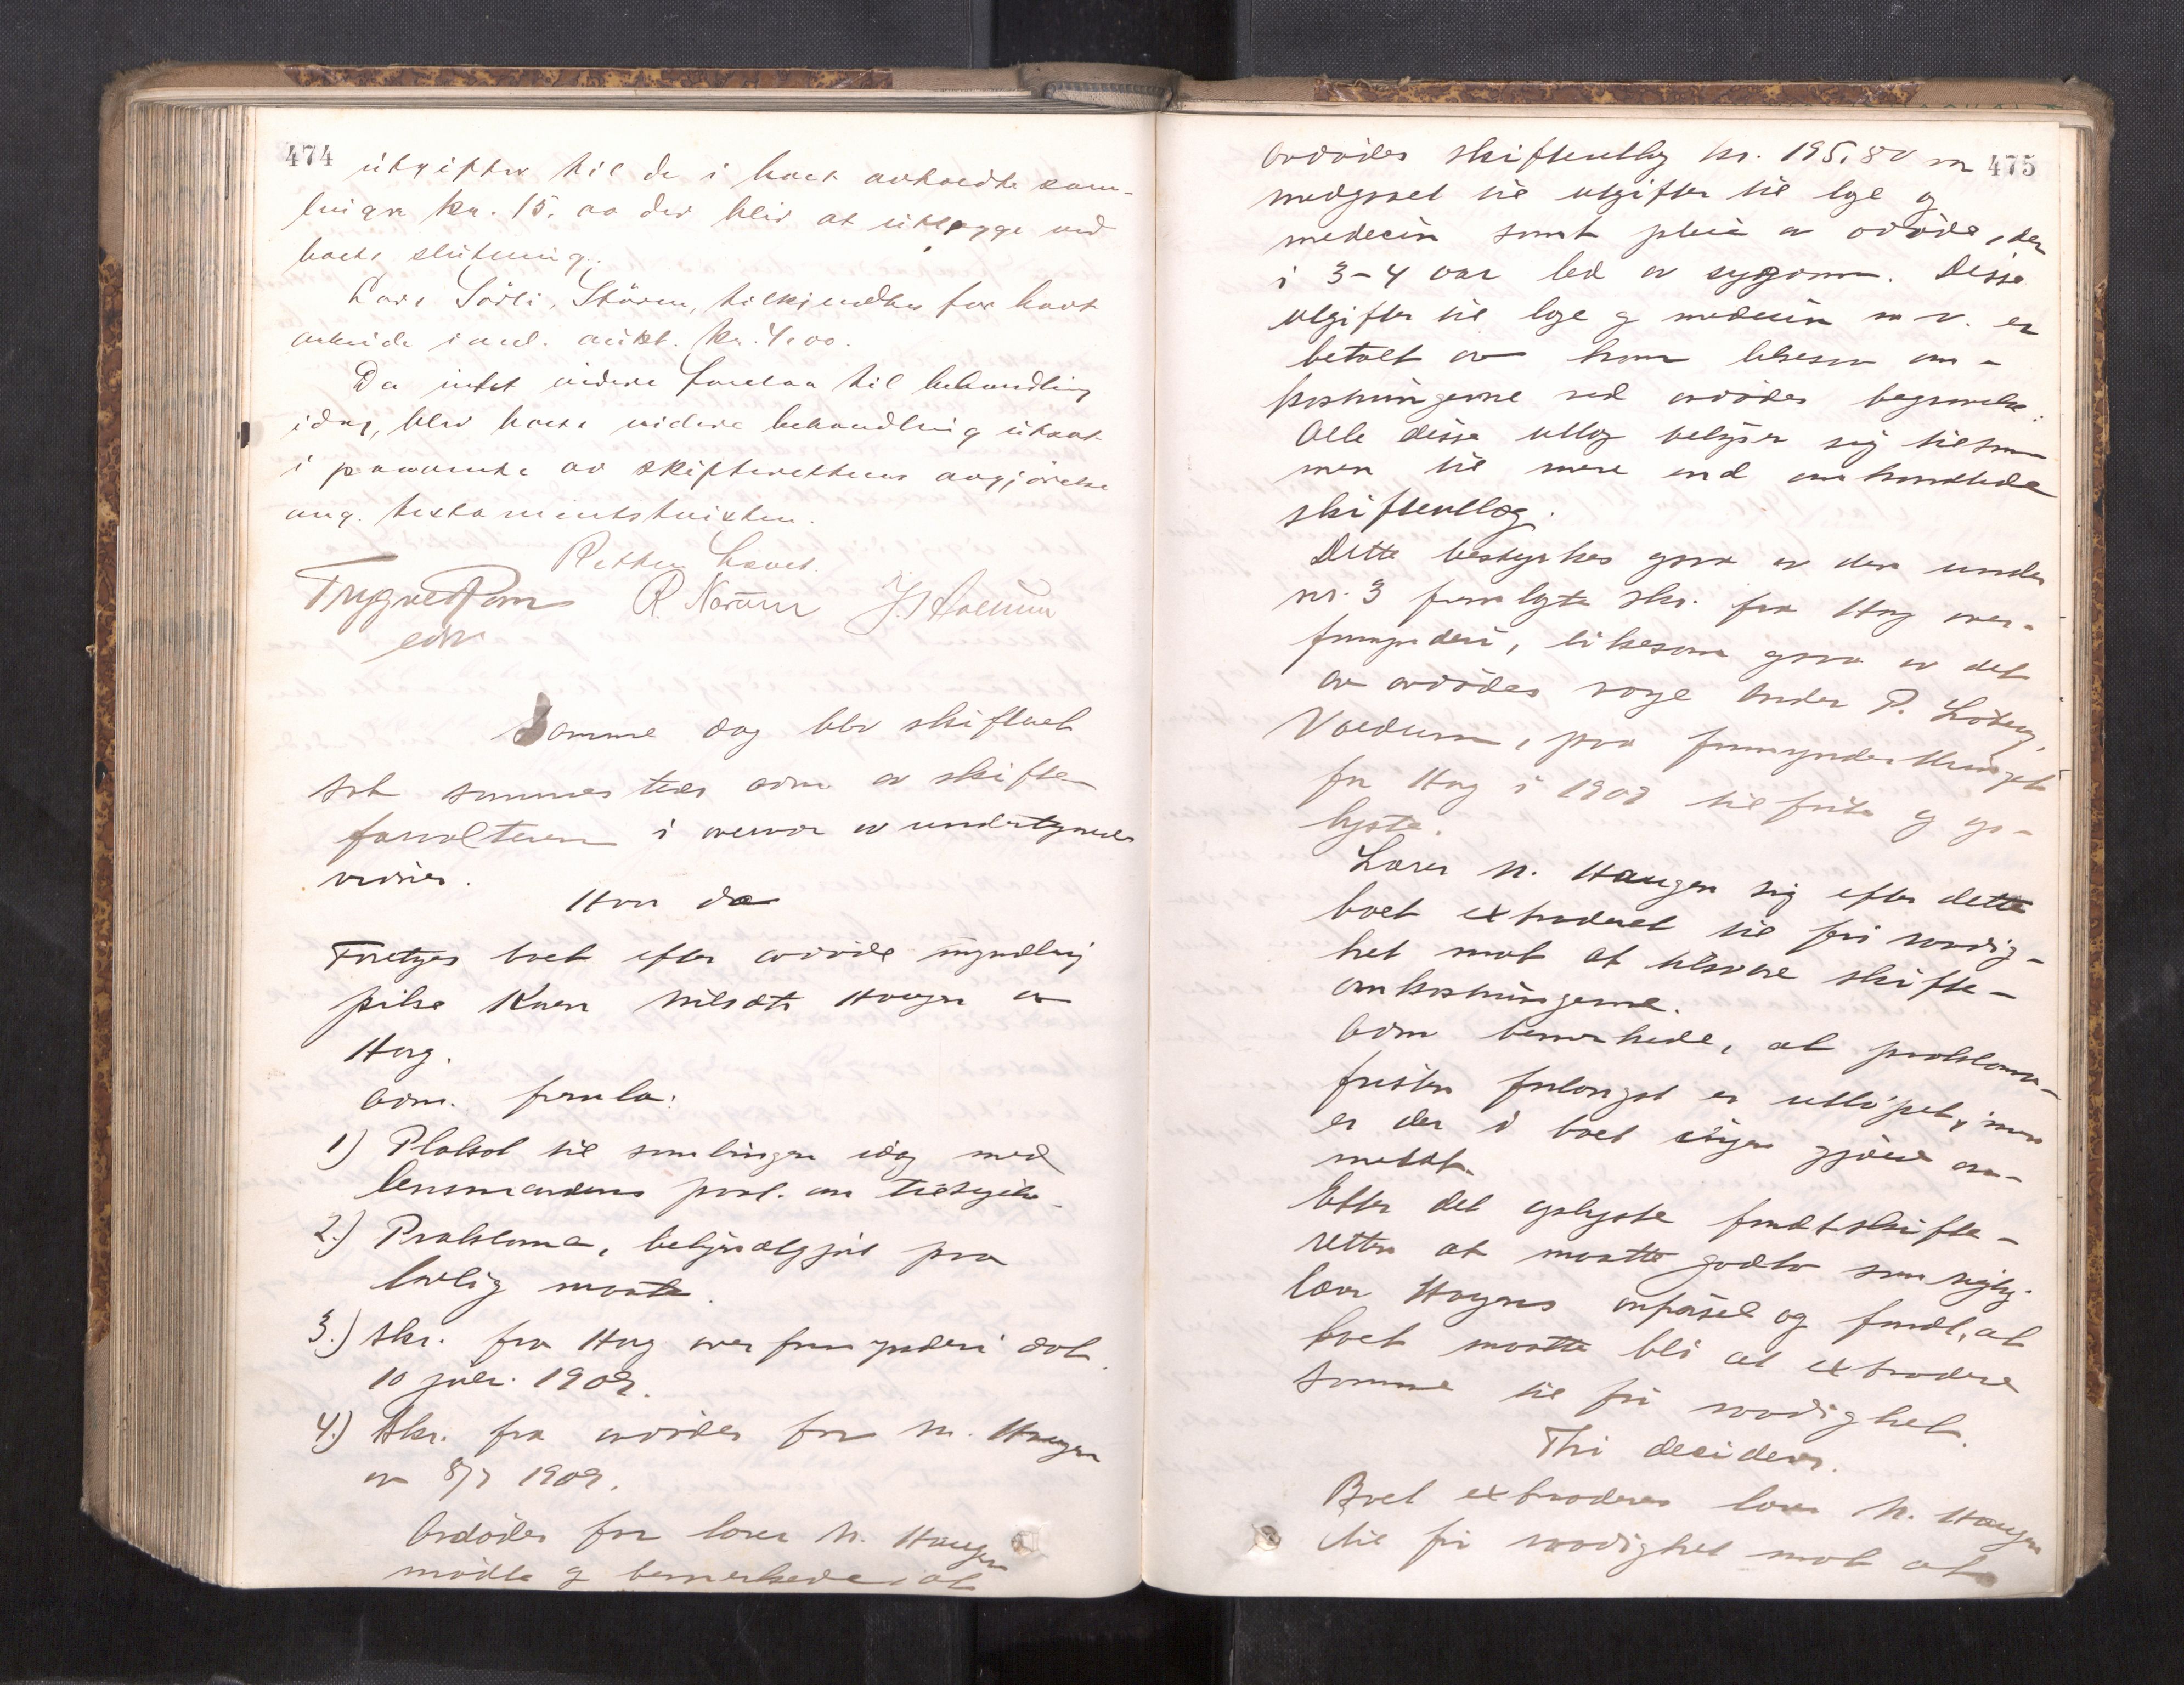 474
utgifter til de i boet avholdte sam-
linger kr. 15.00 der blir at utlægge ved
boets slutning.
Lars Sørli, Støren, tilkjendtes for havt
arbeide i anl. aukt. kr. 4.00.
Da intet videre forelaa til behandling
idag, blev boets videre behandling utsat
i paavente av skifterettens avgjørelse
ang. testamentstvisten.
Retten hævet.
Trygve
edv
Samme dag blev skifteret
sat sammesteds adm av skifte
forvalteren i overvær av undertegnede
vidner.
Hvor da
Foretages boet efter avdøde myndling
pike Karen Nilsdtr Haugen av
Horg.
Adm. fremla:
1) Plakat til samlingen idag med
lensmandens paat. om
2.) Proklama, bekjendtgjort paa
lovlig maate.
3.) Skr. fra Horg overformynderi dat.
10 juli 1909.
4.) Skr. fra avdødes far N. Haugen
av 8/7 1909.
Avdødes far lærer N. Haugen
mødte og bemerkede, at
475
avdødes skifteutlæg kr. 195,80 var
medgaaet til utgifter til læge og
medecin samt pleie av avdøde, der
i 3-4 aar led av sygdom. Disse
utgifter til læge og medecin m v. er
betalt av ham likesom om-
kostningerne ved avdødes begravelse.
Alle disse utlæg beløper sig tilsam
men til mere end omhandlede
skifteutlæg.
Dette bestyrkes ogsaa av den under
nr. 3 fremlagte skr. fra Horg over-
formynderi, likesom ogsaa av det
av avdødes verge Anders P.
Valdum, paa formynderthinget
for Horg i 1909 tilførte og op-
lyste.
Lærer N. Haugen sig efter dette
boet extraderet til fri raadig-
het mot at tilsvare skifte-
omkostningerne.
Adm bemerkede, at proklama-
fristen forlængst er utløpet, men
er der i boet ingen gjæld an-
meldt.
Efter det oplyste fandt skifte-
retten at maatte godta
lærer Haugens og fandt, at
boet maatte bli at extradere
samme til fri raadighet.
Thi decideres.
Boet extraderes lærer N. Haugen
til fri raadighet mot at